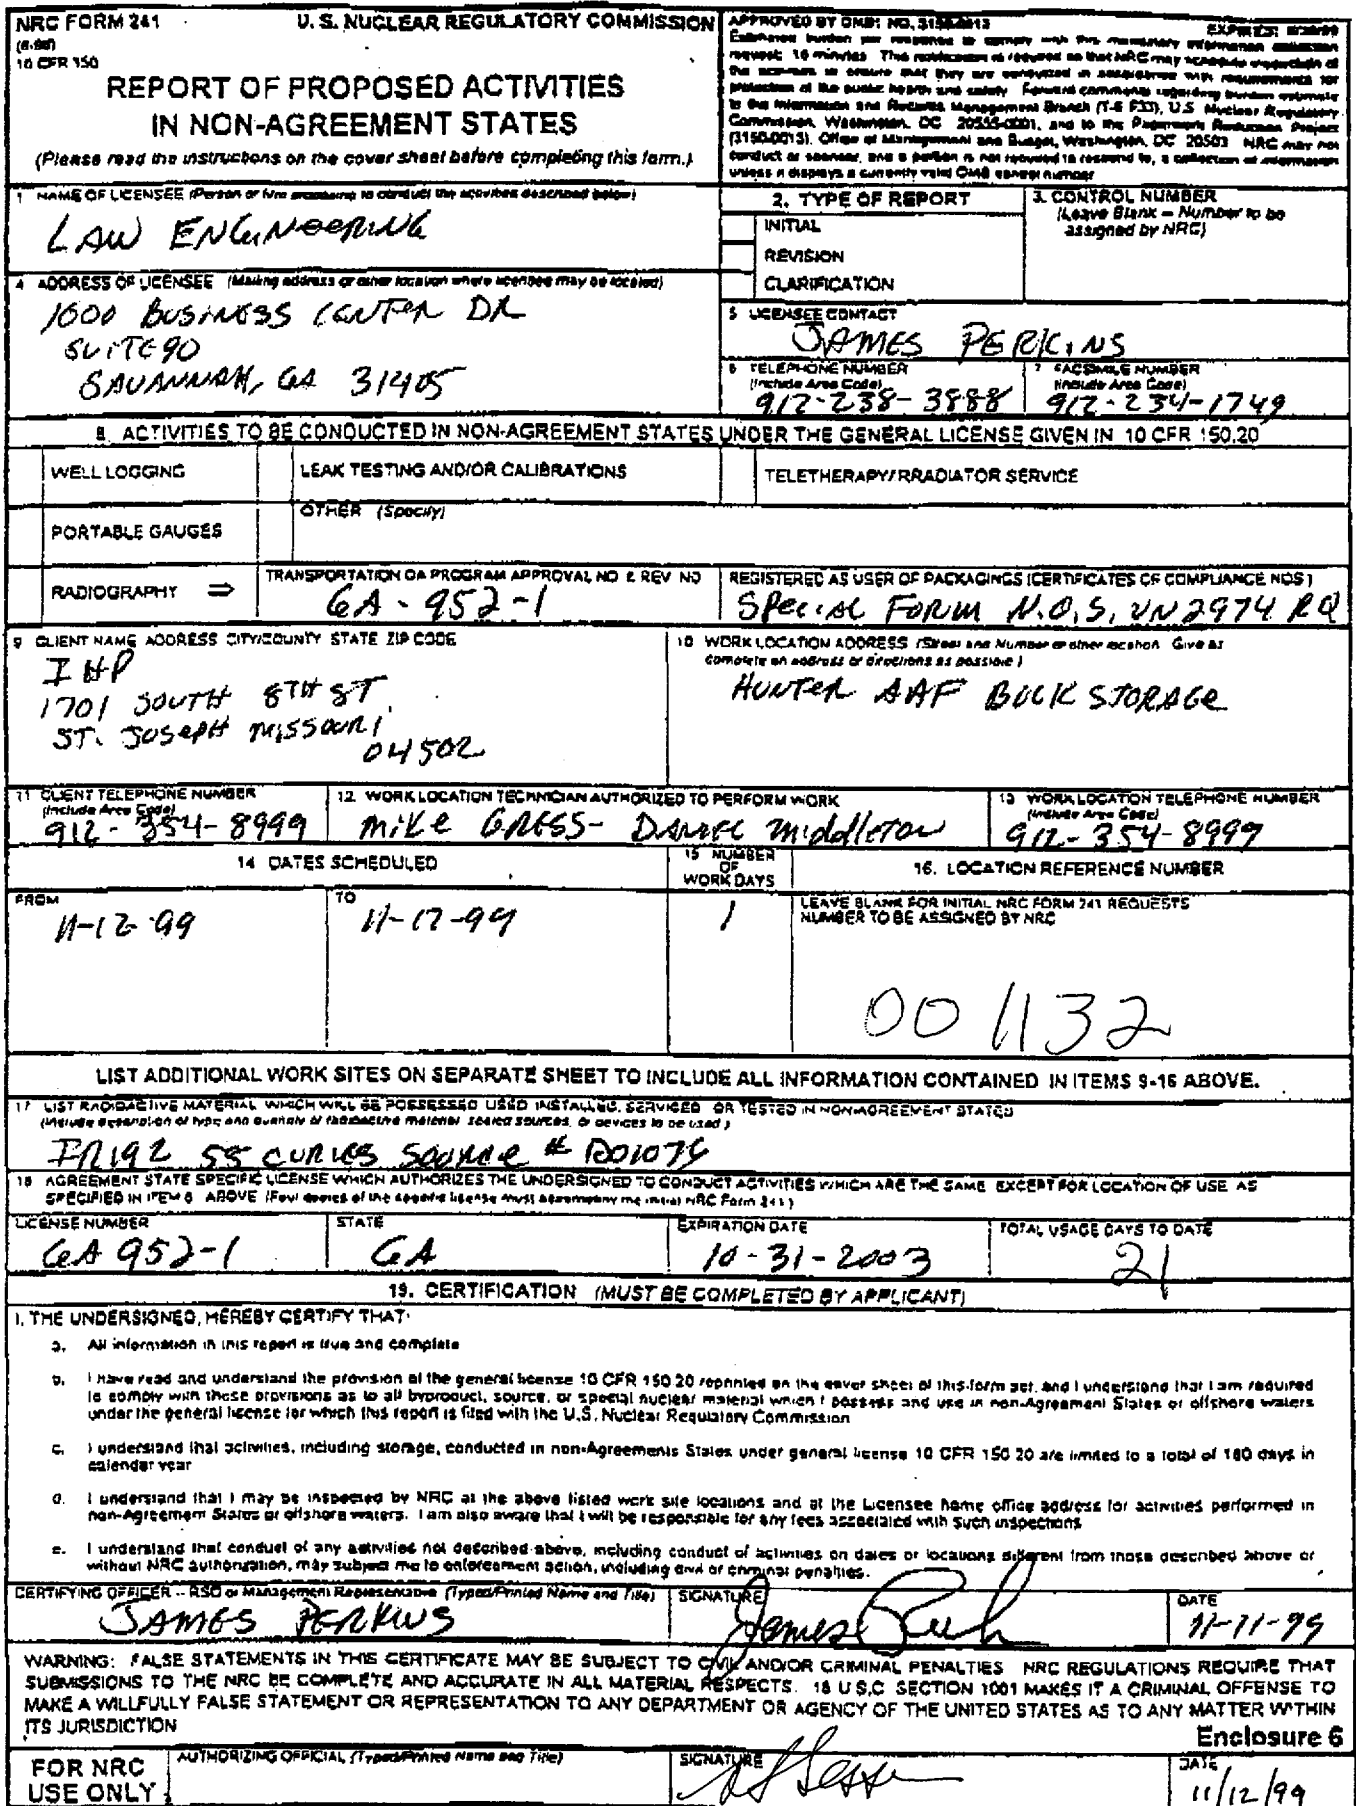 NRC FORM 241
U. S. NUCLEAR REGULATORY COMMISSION
10 CFR 150
REPORT OF PROPOSED ACTIVITIES
IN NON-AGREEMENT STATES
(Please read the instructions on the cover sheet before completing this form.)
APPROVED BY OMB: NO. 3150-0013
EXPIRES:
Estimated burden per response to comply with this mandatory information collection
request: 15 minutes. This notification is required so that NRC may schedule inspection of
the activities to ensure that they are conducted in accordance with requirements for
protection of the public health and safety. Forward comments regarding burden estimate
to the Information and Records Management Branch (T-6 F33), U.S. Nuclear Regulatory
Commission, Washington, DC 20555-0001, and to the Paperwork Reduction Project
(3150-0013), Office of Management and Budget, Washington, DC 20503. NRC may not
conduct or sponsor, and a person is not required to respond to, a collection of information
unless it displays a currently valid OMB control number
1 NAME OF LICENSEE (Person or firm proposing to conduct the activities described below)
LAW ENGINEERING
2. TYPE OF REPORT
INITIAL
REVISION
CLARIFICATION
3. CONTROL NUMBER
(Leave Blank - Number to be
assigned by NRC)
4 ADDRESS OF LICENSEE (Mailing address or other location where licensee may be located)
1600 BUSINESS CENTER DR
SUITE 90
SAVANNAH, GA 31405
5 LICENSEE CONTACT
JAMES PERKINS
6 TELEPHONE NUMBER
(Include Area Code)
912-238-3888
7 FACSIMILE NUMBER
(Include Area Code)
912-234-1749
8. ACTIVITIES TO BE CONDUCTED IN NON-AGREEMENT STATES UNDER THE GENERAL LICENSE GIVEN IN 10 CFR 150.20
WELL LOGGING
LEAK TESTING AND/OR CALIBRATIONS
TELETHERAPY/IRRADIATOR SERVICE
PORTABLE GAUGES
OTHER (Specify)
RADIOGRAPHY ⇒
TRANSPORTATION QA PROGRAM APPROVAL NO & REV NO
GA-952-1
REGISTERED AS USER OF PACKAGINGS (CERTIFICATES OF COMPLIANCE NOS)
SPECIAL FORM N.O.S. UN2974 RQ
9 CLIENT NAME ADDRESS CITY/COUNTY STATE ZIP CODE
IHP
1701 SOUTH 8TH ST.
ST. JOSEPH MISSOURI
04502
10 WORK LOCATION ADDRESS (Street and Number or other location. Give as
complete an address or directions as possible)
HUNTER AAF BULK STORAGE
11 CLIENT TELEPHONE NUMBER
(Include Area Code)
912-354-8999
12. WORK LOCATION TECHNICIAN AUTHORIZED TO PERFORM WORK
MIKE GRESS- DANIEL Middleton
13 WORK LOCATION TELEPHONE NUMBER
(Include Area Code)
912-354-8999
14 DATES SCHEDULED
15 NUMBER
OF
WORK DAYS
16. LOCATION REFERENCE NUMBER
FROM
11-12-99
TO
11-12-99
1
LEAVE BLANK FOR INITIAL NRC FORM 241 REQUESTS
NUMBER TO BE ASSIGNED BY NRC
001132
LIST ADDITIONAL WORK SITES ON SEPARATE SHEET TO INCLUDE ALL INFORMATION CONTAINED IN ITEMS 9-16 ABOVE.
17 LIST RADIOACTIVE MATERIAL WHICH WILL BE POSSESSED USED INSTALLED, SERVICED OR TESTED IN NON-AGREEMENT STATES
(Include description of type and quantity of radioactive material sealed sources, or devices to be used)
IR192 55 CURIES SOURCE #
18 AGREEMENT STATE SPECIFIC LICENSE WHICH AUTHORIZES THE UNDERSIGNED TO CONDUCT ACTIVITIES WHICH ARE THE SAME EXCEPT FOR LOCATION OF USE AS
SPECIFIED IN ITEM 8 ABOVE (Four copies of the specific license must accompany the initial NRC Form 241)
LICENSE NUMBER
GA 952-1
STATE
GA
EXPIRATION DATE
10-31-2003
TOTAL USAGE DAYS TO DATE
21
19. CERTIFICATION (MUST BE COMPLETED BY APPLICANT)
I, THE UNDERSIGNED, HEREBY CERTIFY THAT:
a. All information in this report is true and complete
b. I have read and understand the provision of the general license 10 CFR 150 20 reprinted on the cover sheet of this form set, and I understand that I am required
to comply with these provisions as to all byproduct, source, or special nuclear material which I possess and use in non-Agreement States or offshore waters
under the general license for which this report is filed with the U.S. Nuclear Regulatory Commission
c. I understand that activities, including storage, conducted in non-Agreements States under general license 10 CFR 150 20 are limited to a total of 180 days in
calendar year
d. I understand that I may be inspected by NRC at the above listed work site locations and at the Licensee home office address for activities performed in
non-Agreement States or offshore waters. I am also aware that I will be responsible for any fees associated with such inspections
e. I understand that conduct of any activities not described above, including conduct of activities on dates or locations different from those described above or
without NRC authorization, may subject me to enforcement action, including civil or criminal penalties.
CERTIFYING OFFICER - RSO or Management Representative (Typed/Printed Name and Title)
JAMES PERKINS
SIGNATURE
DATE
11-11-99
WARNING: FALSE STATEMENTS IN THIS CERTIFICATE MAY BE SUBJECT TO CIVIL AND/OR CRIMINAL PENALTIES NRC REGULATIONS REQUIRE THAT
SUBMISSIONS TO THE NRC BE COMPLETE AND ACCURATE IN ALL MATERIAL RESPECTS. 18 U.S.C SECTION 1001 MAKES IT A CRIMINAL OFFENSE TO
MAKE A WILLFULLY FALSE STATEMENT OR REPRESENTATION TO ANY DEPARTMENT OR AGENCY OF THE UNITED STATES AS TO ANY MATTER WITHIN
ITS JURISDICTION
Enclosure 6
FOR NRC
USE ONLY
AUTHORIZING OFFICIAL (Typed/Printed Name and Title)
SIGNATURE
DATE
11/12/99